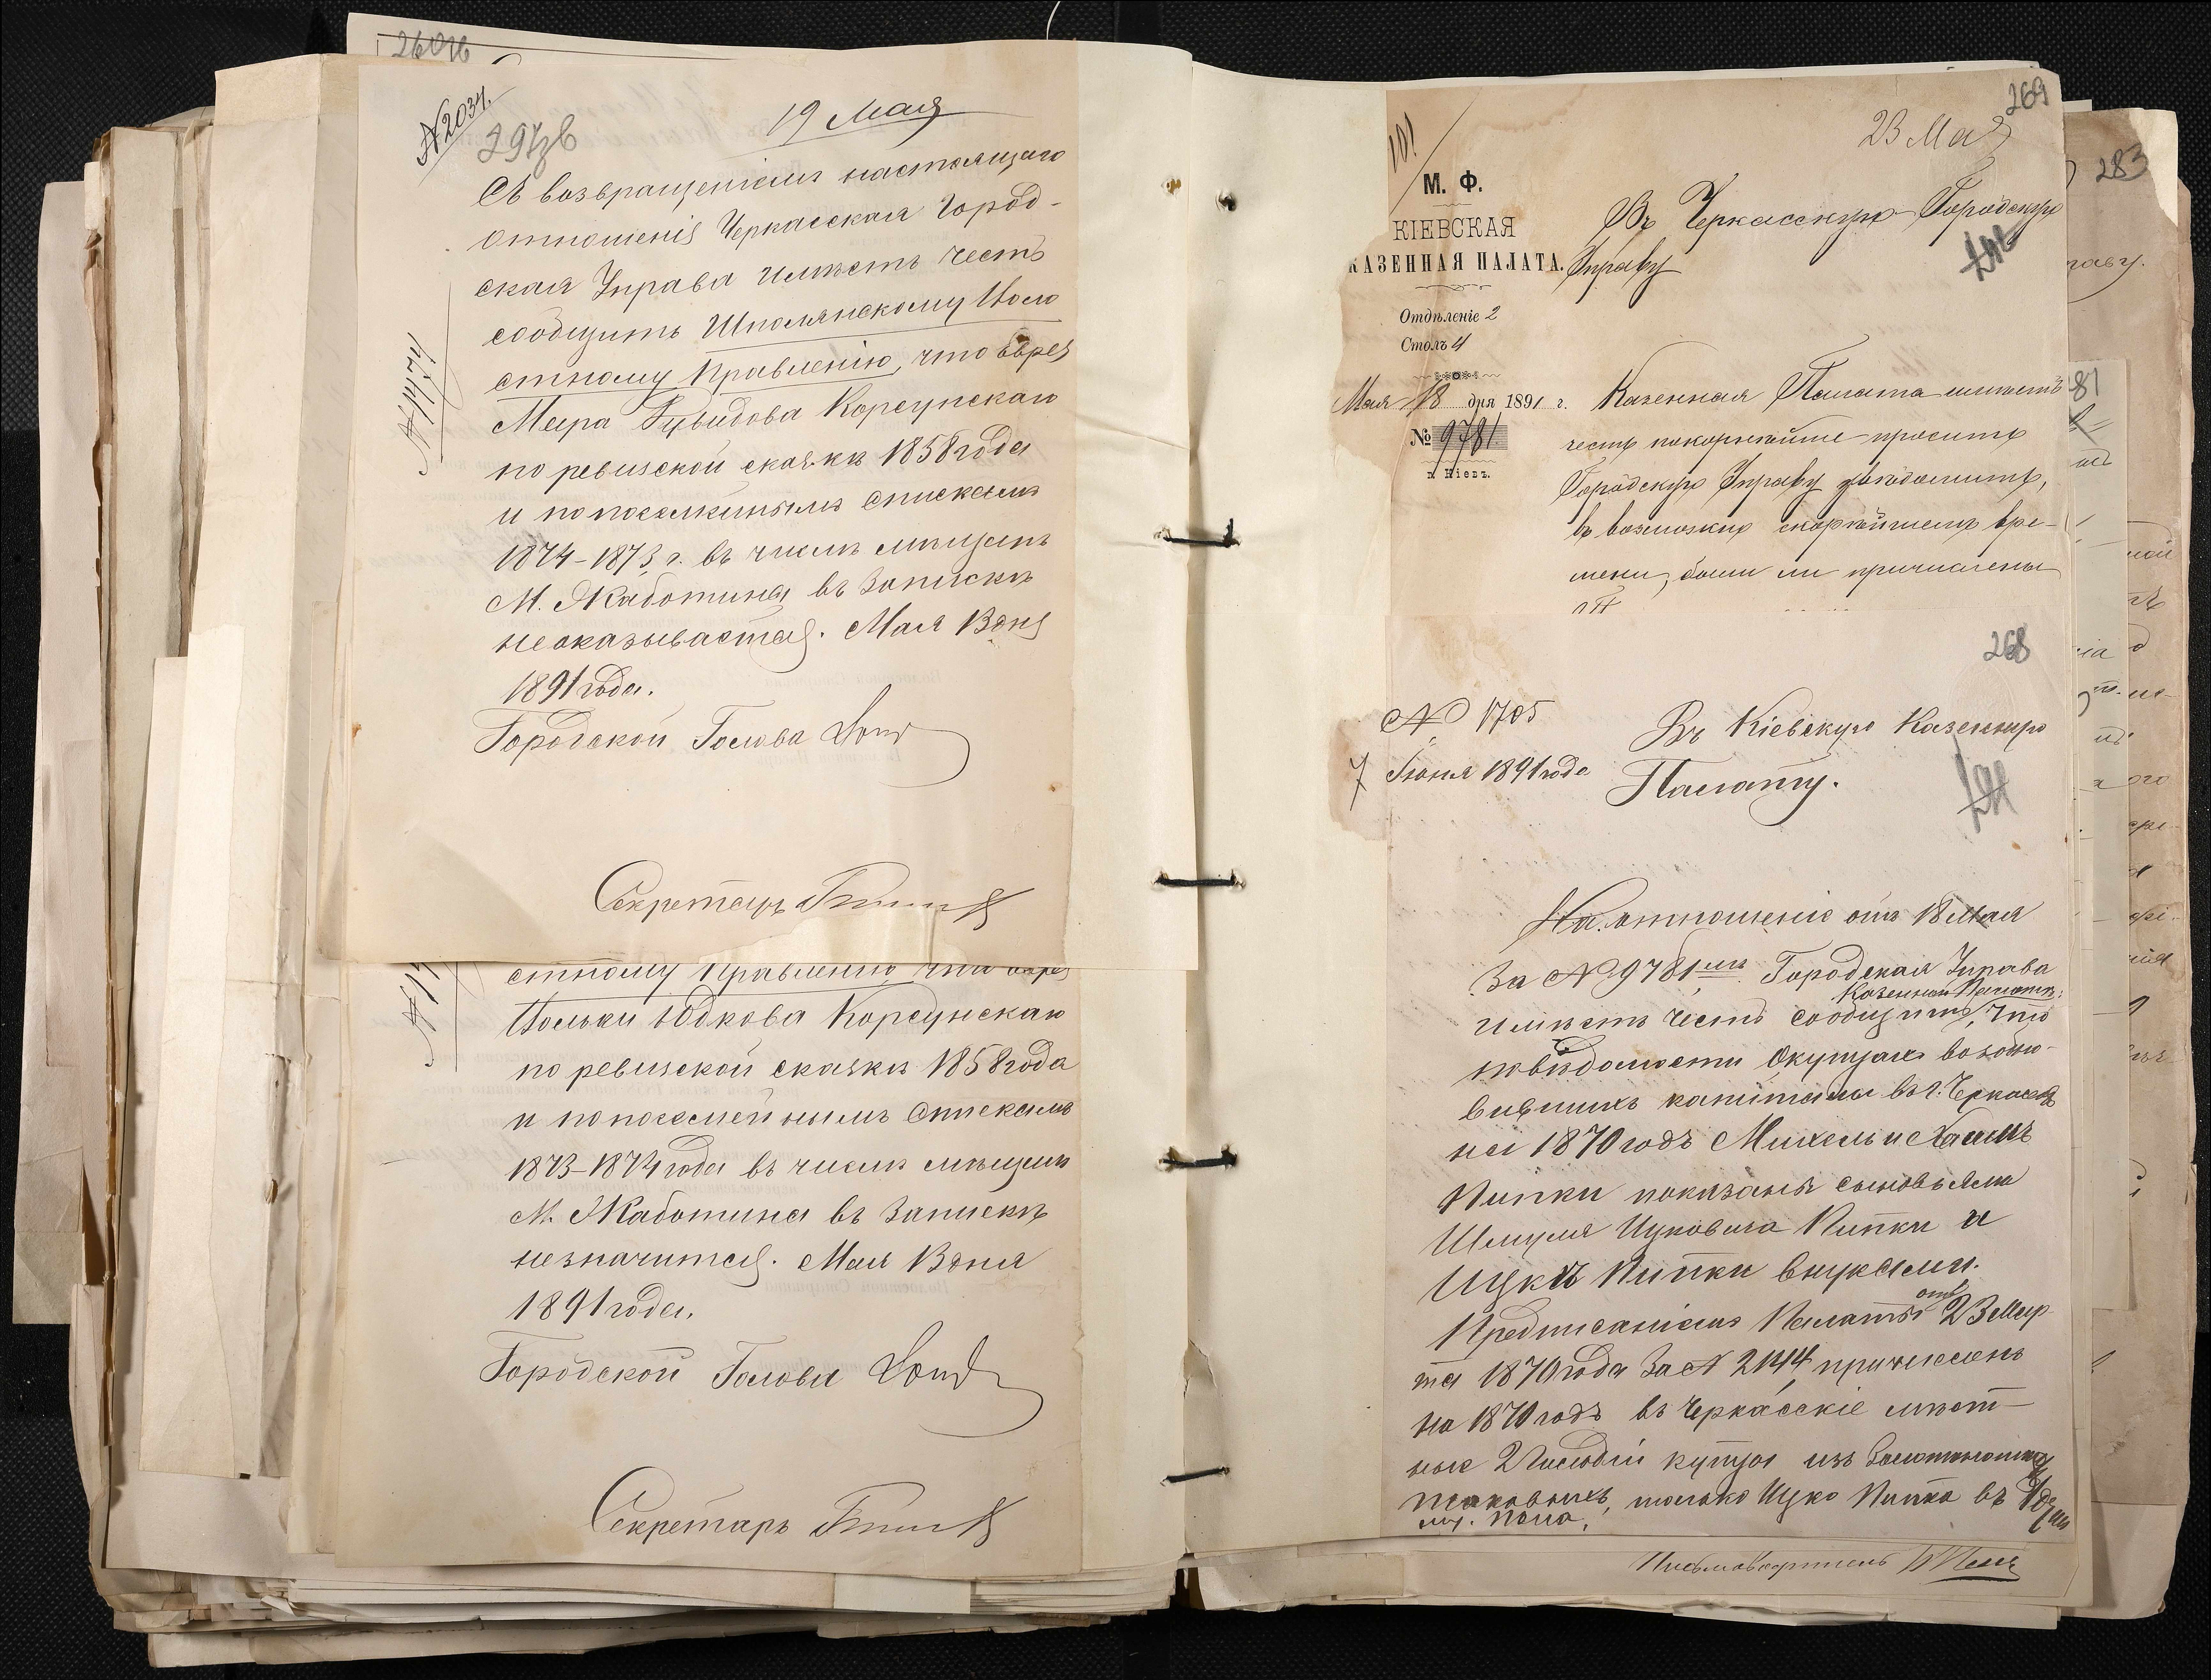 260б
№2034.
297зв
19 Мая
Съ возвращеніемъ настоящаго
отношенія Черкасская Город-
ская Управа имѣетъ честь
сообщить Шполянскому Воло
стному Правленію, что еврея
Меера Дувидова Корсунскаго
по ревизской сказкѣ 1858 года
и по посемейнымъ спискамъ
1874-1873 г. въ числѣ мѣщанъ
М. Жаботина въ запискѣ
не оказывается. Мая 13 дня
1891 года.
Городской Голова
Секретарь
стному Правленію, что еврея
Юдкова Корсунскаго
по ревизской сказкѣ 1858 года
и по посемейнымъ спискамъ
1873-1874 года въ числѣ мѣщанъ
М. Жаботина въ запискѣ
не значится. Мая 13 дня
1891 года.
Городской Голова
Секретарь
269
23 Мая
101
М. Ф.
КІЕВСКАЯ
КАЗЕННАЯ ПАЛАТА.
Отдѣленіе 2
Столъ 4
Мая 18 дня 1891 г.
№ 9781
г. Кіевъ.
Въ Черкасскую Городскую
Управу
Казенная Палата имѣетъ
честь покорнѣйше просить
Городскую Управу увѣдомить,
въ возможно скорѣйшемъ вре-
мени, были ли причислены
268
№ 1705
7 Іюня 1891 года
Въ Кіевскую Казенную
Палату.
На отношеніе отъ 18 Мая
за № 9781 Городская Управа
имѣетъ честь сообщить Казенной Палатѣ, что
по вѣдомости о купцахъ возобно-
вившихъ капиталы въ г. Черкассахъ
на 1870 годъ Михель и Хаимъ
Пипки показаны сыновьями
Шмуля Ицковича Пипки и
Ицки Пипки внуками.
Предписаніемъ Палаты отъ 23 Мар
та 1870 года за № 2144 причисленъ
на 1870 годъ въ Черкасскіе мѣст-
ные 2 гильдіи купцы изъ Золотоношскихъ
таковыхъ, только Ицко Пипка въ
283
281
Письмоводитель